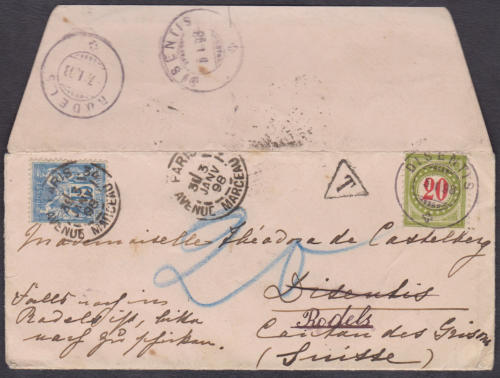 RODELS
DISENTIS
PARIS 34
3
JANV
98
AVENUE MARCEAU
PARIS 34
3
JANV
98
AVENUE MARCEAU
T
DISENTIS
20
Mademoiselle Théodora de Castelberg
20
Disentis
Rodels
Canton des Grisons
(Suisse)
Falls noch in
Rodels ist, bitte
nach zu schicken.